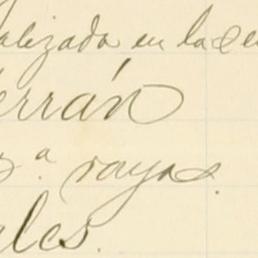 alizada en la se
errán
z.ª rayas.
ales.